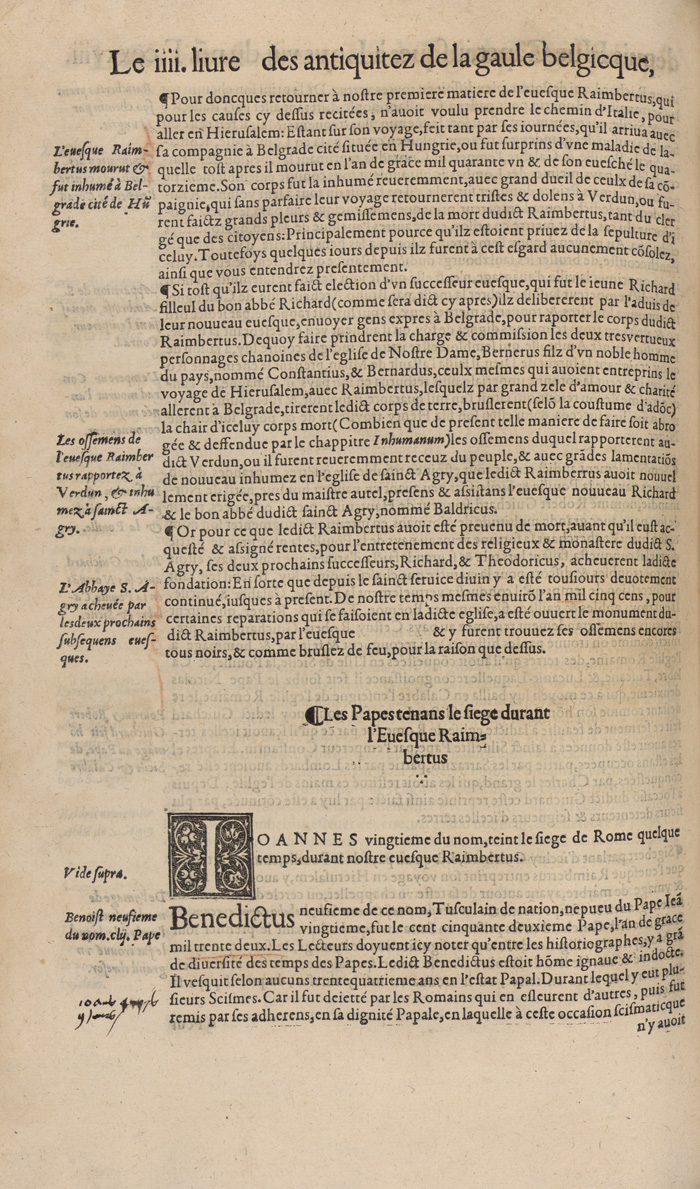 Le iiii. liure des antiquitez de la gaule belgicque,
¶Pour doncques retourner à nostre premiere matiere de l'euesque Raimbertus, qui
pour les causes cy dessus recitées, n'auoit voulu prendre le chemin d'Italie, pour
aller en Hierusalem: Estant sur son voyage, feit tant par ses iournées, qu'il arriua auec
sa compagnie à Belgrade cité située en Hungrie, ou fut surprins d'vne maladie de la-
quelle tost apres il mourut en l'an de grace mil quarante vn & de son euesché le qua-
torzieme. Son corps fut la inhumé reueremment, auec grand dueil de ceulx de sa cō-
paignie, qui sans parfaire leur voyage retournerent tristes & dolens à Verdun, ou fu-
rent faictz grands pleurs & gemissemens, de la mort dudict Raimbertus, tant du cler
gé que des citoyens: Principalement pource qu'ilz estoient priuez de la sepulture d'i
celuy. Toutefoys quelques iours depuis ilz furent à cest esgard aucunement cōsolez,
ainsi que vous entendrez presentement.
L'euesque Raim-
bertus mourut &
fut inhumé à Bel-
grade cité de Hū
grie.
¶Si tost qu'ilz eurent faict election d'vn successeur euesque, qui fut le ieune Richard
filleul du bon abbé Richard (comme sera dict cy apres) ilz delibererent par l'aduis de
leur nouueau euesque, enuoyer gens expres à Belgrade, pour raporter le corps dudict
Raimbertus. Dequoy faire prindrent la charge & commission les deux tresvertueux
personnages chanoines de l'eglise de Nostre Dame, Bernerus filz d'vn noble homme
du pays, nommé Constantius, & Bernardus, ceulx mesmes qui auoient entreprins le
voyage de Hierusalem, auec Raimbertus, lesquelz par grand zele d'amour & charité
allerent à Belgrade, tirerent ledict corps de terre, bruslerent (selō la coustume d'adōc)
la chair d'iceluy corps mort (Combien que de present telle maniere de faire soit abro
gée & deffendue par le chappitre Inhumanum) les ossemens duquel rapporterent au-
dict Verdun, ou il furent reueremment receuz du peuple, & auec grādes lamentatiōs
de nouueau inhumez en l'eglise de sainct Agry, que ledict Raimbertus auoit nouuel
lement erigée, pres du maistre autel, presens & assistans l'euesque nouueau Richard
& le bon abbé dudict sainct Agry, nommé Baldricus.
Les ossemens de
l'euesque Raimber
tus rapportez à
Verdun, & inhu
mez à sainct A-
gry.
¶Or pour ce que ledict Raimbertus auoit esté preuenu de mort, auant qu'il eust ac-
questé & assigné rentes, pour l'entretenement des religieux & monastere dudict S.
Agry, ses deux prochains successeurs, Richard, & Theodoricus, acheuerent ladicte
fondation: En sorte que depuis le sainct seruice diuin y a esté tousiours deuotement
continué, iusques à present. De nostre temps mesmes enuirō l'an mil cinq cens, pour
certaines reparations qui se faisoient en ladicte eglise, a esté ouuert le monument du-
dict Raimbertus, par l'euesque & y furent trouuez ses ossemens encores
tous noirs, & comme bruslez de feu, pour la raison que dessus.
L'Abbaye S. A-
gry acheuée par
les deux prochains
subsequens eues-
ques.
¶Les Papes tenans le siege durant
l'Euesque Raim-
bertus
IOANNES vingtieme du nom, teint le siege de Rome quelque
temps, durant nostre euesque Raimbertus.
Vide supra.
Benedictus neufieme de ce nom, Tusculain de nation, nepueu du Pape Ieā
vingtieme, fut le cent cinquante deuxieme Pape, l'an de grace
mil trente deux. Les Lecteurs doyuent icy noter qu'entre les historiographes, y a grā
de diuersité des temps des Papes. Ledict Benedictus estoit hōme ignaue & indocte.
Il vesquit selon aucuns trentequatrieme ans en l'estat Papal. Durant lequel y eut plu-
sieurs Scismes. Car il fut deietté par les Romains qui en esleurent d'autres, puis fut
remis par ses adherens, en sa dignité Papale, en laquelle à ceste occasion scismaticque
n'y auoit
Benoist neufieme
du nom. clij. Pape